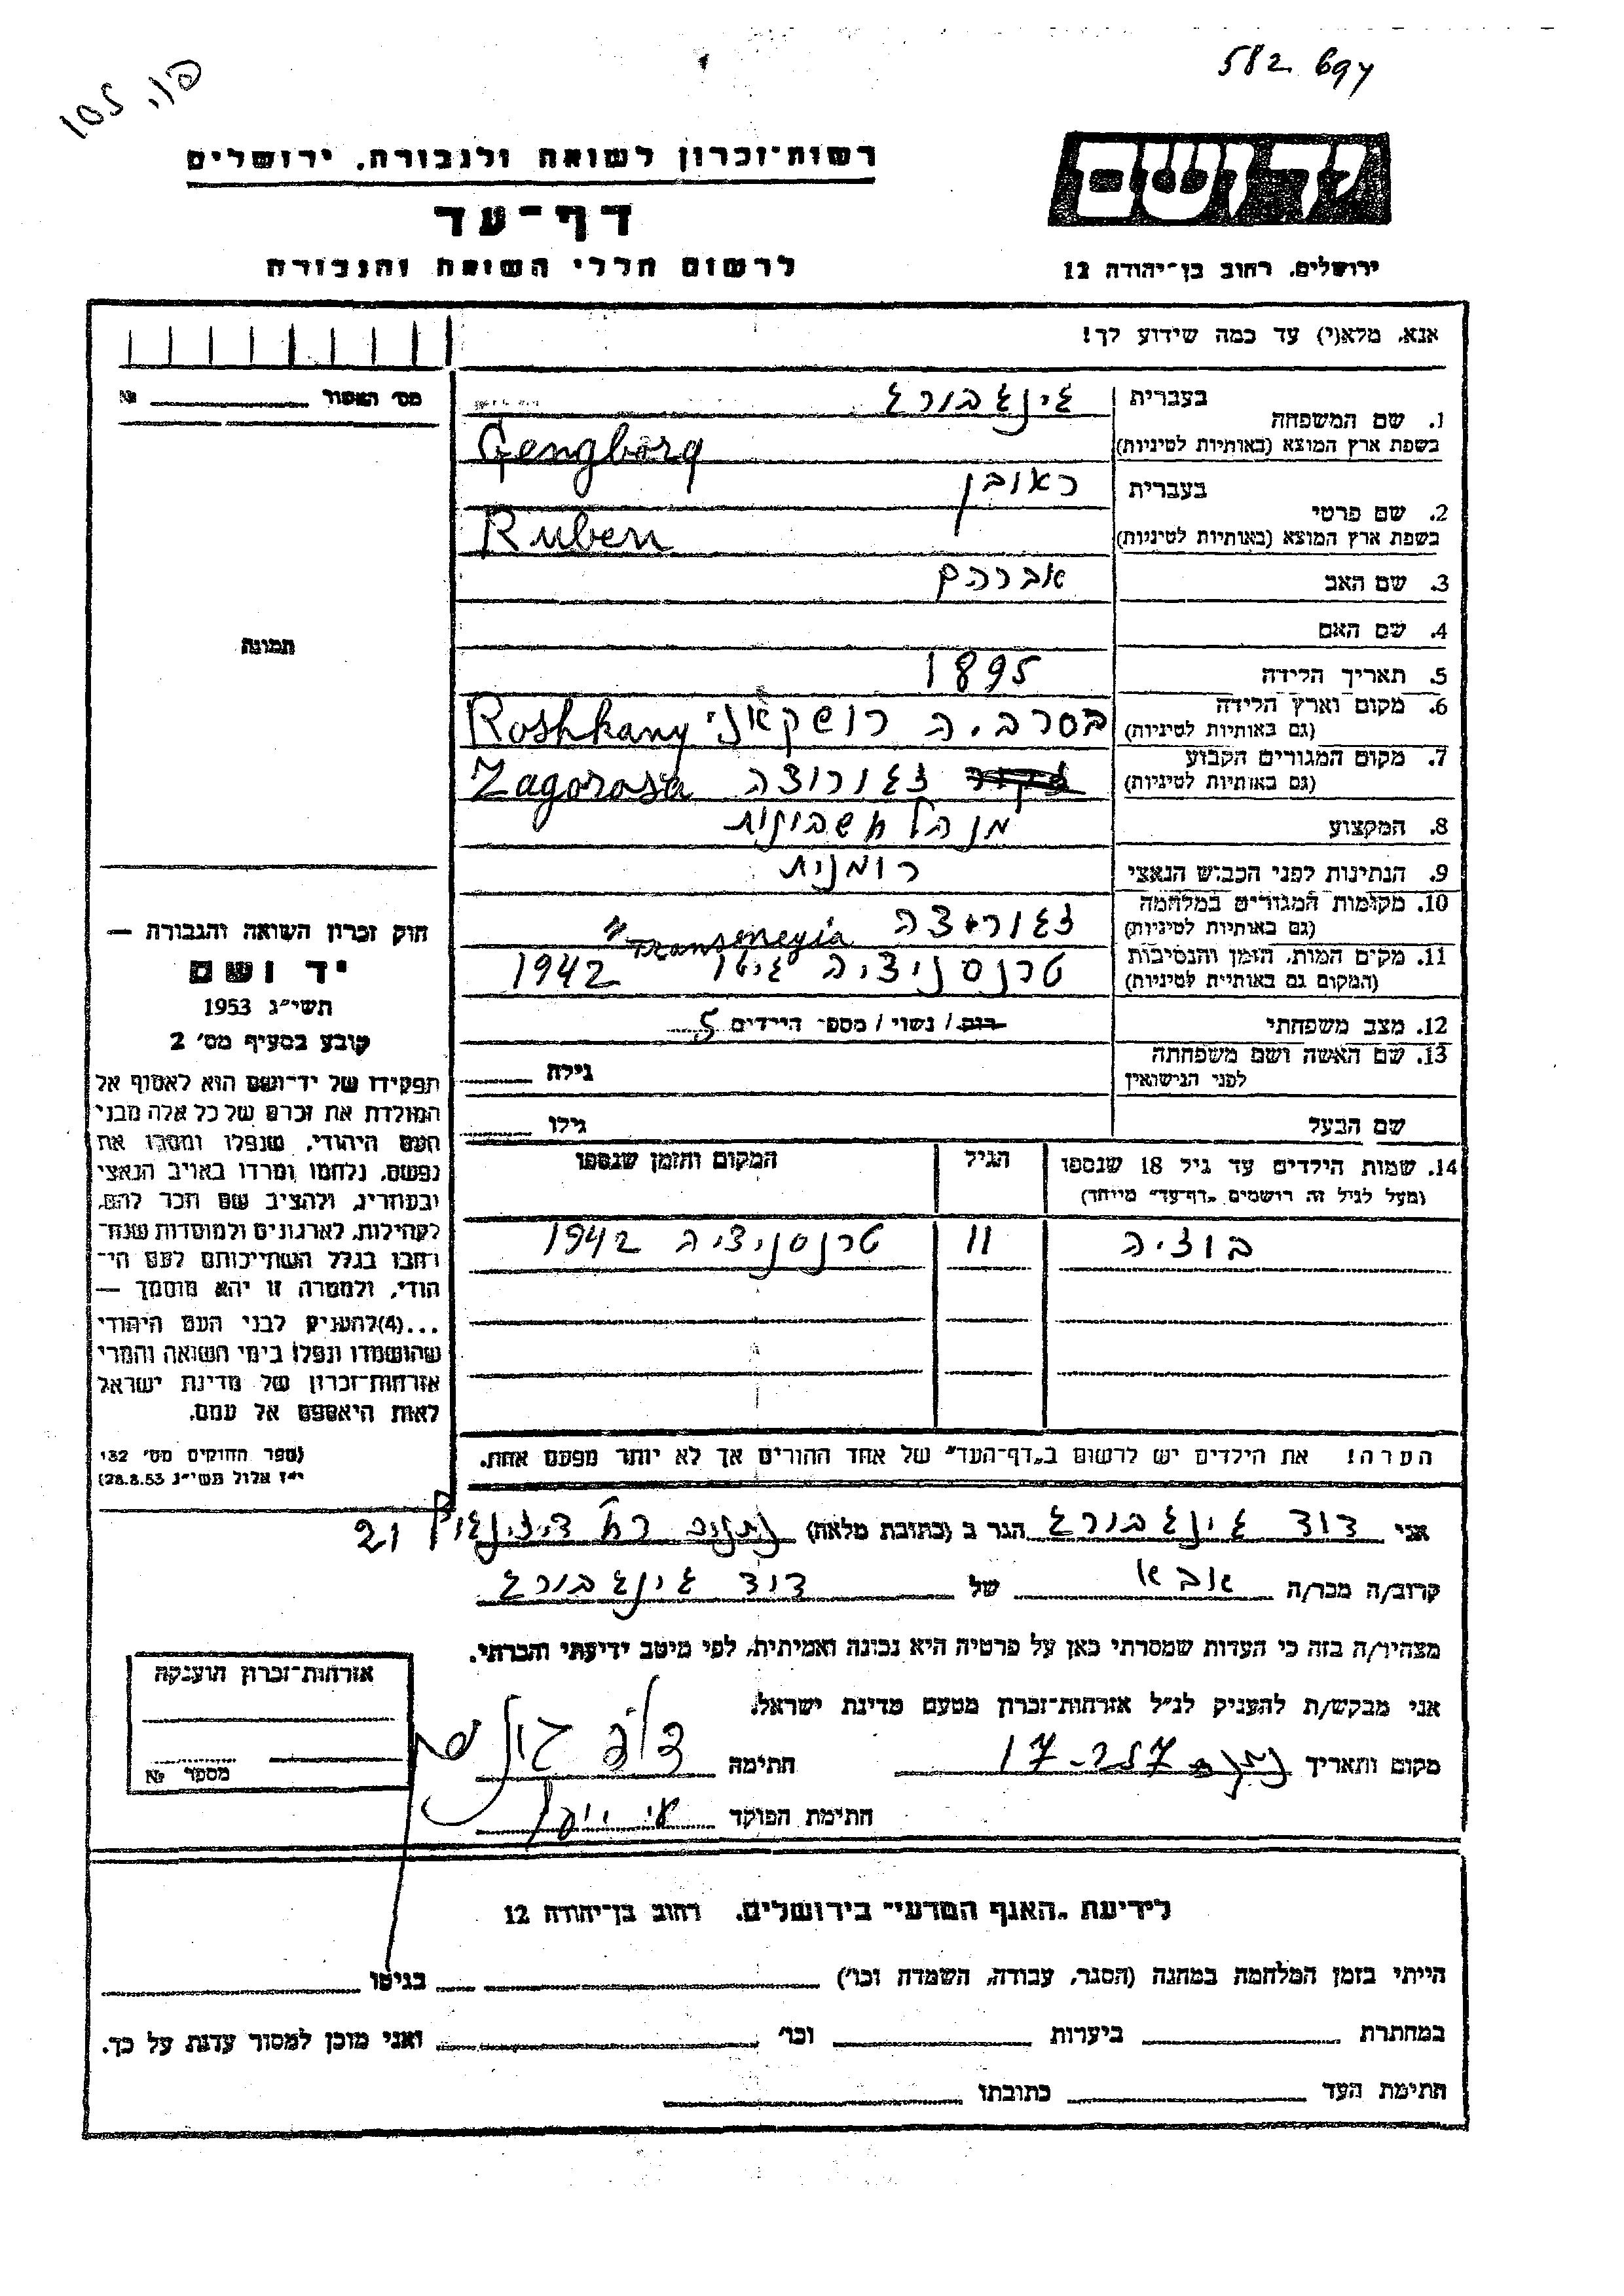 582 694
105
רשות־זכרון לשואה ולגבורה, ירושלים
יד ושם
דף־עד
לרשום חללי השואה והגבורה
ירושלים, רחוב בן־יהודה 12
אנא, מלא(י) עד כמה שידוע לך!
מס׳ האסור № 
1. שם המשפחה בעברית גינגבורג
בשפת ארץ המוצא (באותיות לטיניות) Gengborg
2. שם פרטי בעברית ראובן
בשפת ארץ המוצא (באותיות לטיניות) Ruben
3. שם האב אברהם
4. שם האם
5. תאריך הלידה 1895
6. מקום וארץ הלידה (גם באותיות לטיניות) בסרביה רושקאני Roshkany
7. מקום המגורים הקבוע (גם באותיות לטיניות) זגורוצה Zagorosa
8. המקצוע מנהל חשבונות
9. הנתינות לפני הכבוש הנאצי רומנית
10. מקומות המגורים במלחמה (גם באותיות לטיניות) זגורוצה
11. מקום המות, הזמן והנסיבות (המקום גם באותיות לטיניות) טרנסניציה גיטו 1942
12. מצב משפחתי רווק / נשוי / מספר הילדים 5
13. שם האשה ושם משפחתה לפני הנישואין גילה
שם הבעל גילו
14. שמות הילדים עד גיל 18 שנספו הגיל המקום והזמן שנספו
(מעל לגיל זה רושמים „דף־עד” מיוחד)
בוזיה 11 טרנסניציה 1942
הערה! את הילדים יש לרשום ב„דף־העד” של אחד ההורים אך לא יותר מפעם אחת.
תמונה
חוק זכרון השואה והגבורה —
יד ושם
תשי״ג 1953
קובע בסעיף מס׳ 2
תפקידו של יד־ושם הוא לאסוף אל
המולדת את זכרם של כל אלה מבני
העם היהודי, שנפלו ומסרו את
נפשם, נלחמו ומרדו באויב הנאצי
ובעוזריו, ולהציב שם וזכר להם,
לקהילות, לארגונים ולמוסדות שנח־
רבו בגלל השתייכותם לעם הי־
הודי, ולמטרה זו יהא מוסמך —
...(4)להעניק לבני העם היהודי
שהושמדו ונפלו בימי השואה והמרי
אזרחות־זכרון של מדינת ישראל
לאות היאספם אל עמם.
(ספר החוקים מס׳ 132
י״ז אלול תשי״ג 28.8.53)
אני דוד גינגבורג הגר ב (כתובת מלאה) נתניה רח׳ דיזינגוף 21
קרוב/ה מכר/ה אבא של דוד גינגבורג
מצהיר/ה בזה כי העדות שמסרתי כאן על פרטיה היא נכונה ואמיתית, לפי מיטב ידיעתי והכרתי.
אני מבקש/ת להעניק לנ״ל אזרחות־זכרון מטעם מדינת ישראל.
מקום ותאריך חתימה
חתימת הפוקד
אזרחות־זכרון הוענקה
מספר №
לידיעת „האגף המדעי” בירושלים, רחוב בן־יהודה 12
הייתי בזמן המלחמה במחנה (הסגר, עבודה, השמדה וכו׳) בגיטו
במחתרת ביערות וכו׳ ואני מוכן למסור עדות על כך.
חתימת העד כתובתו